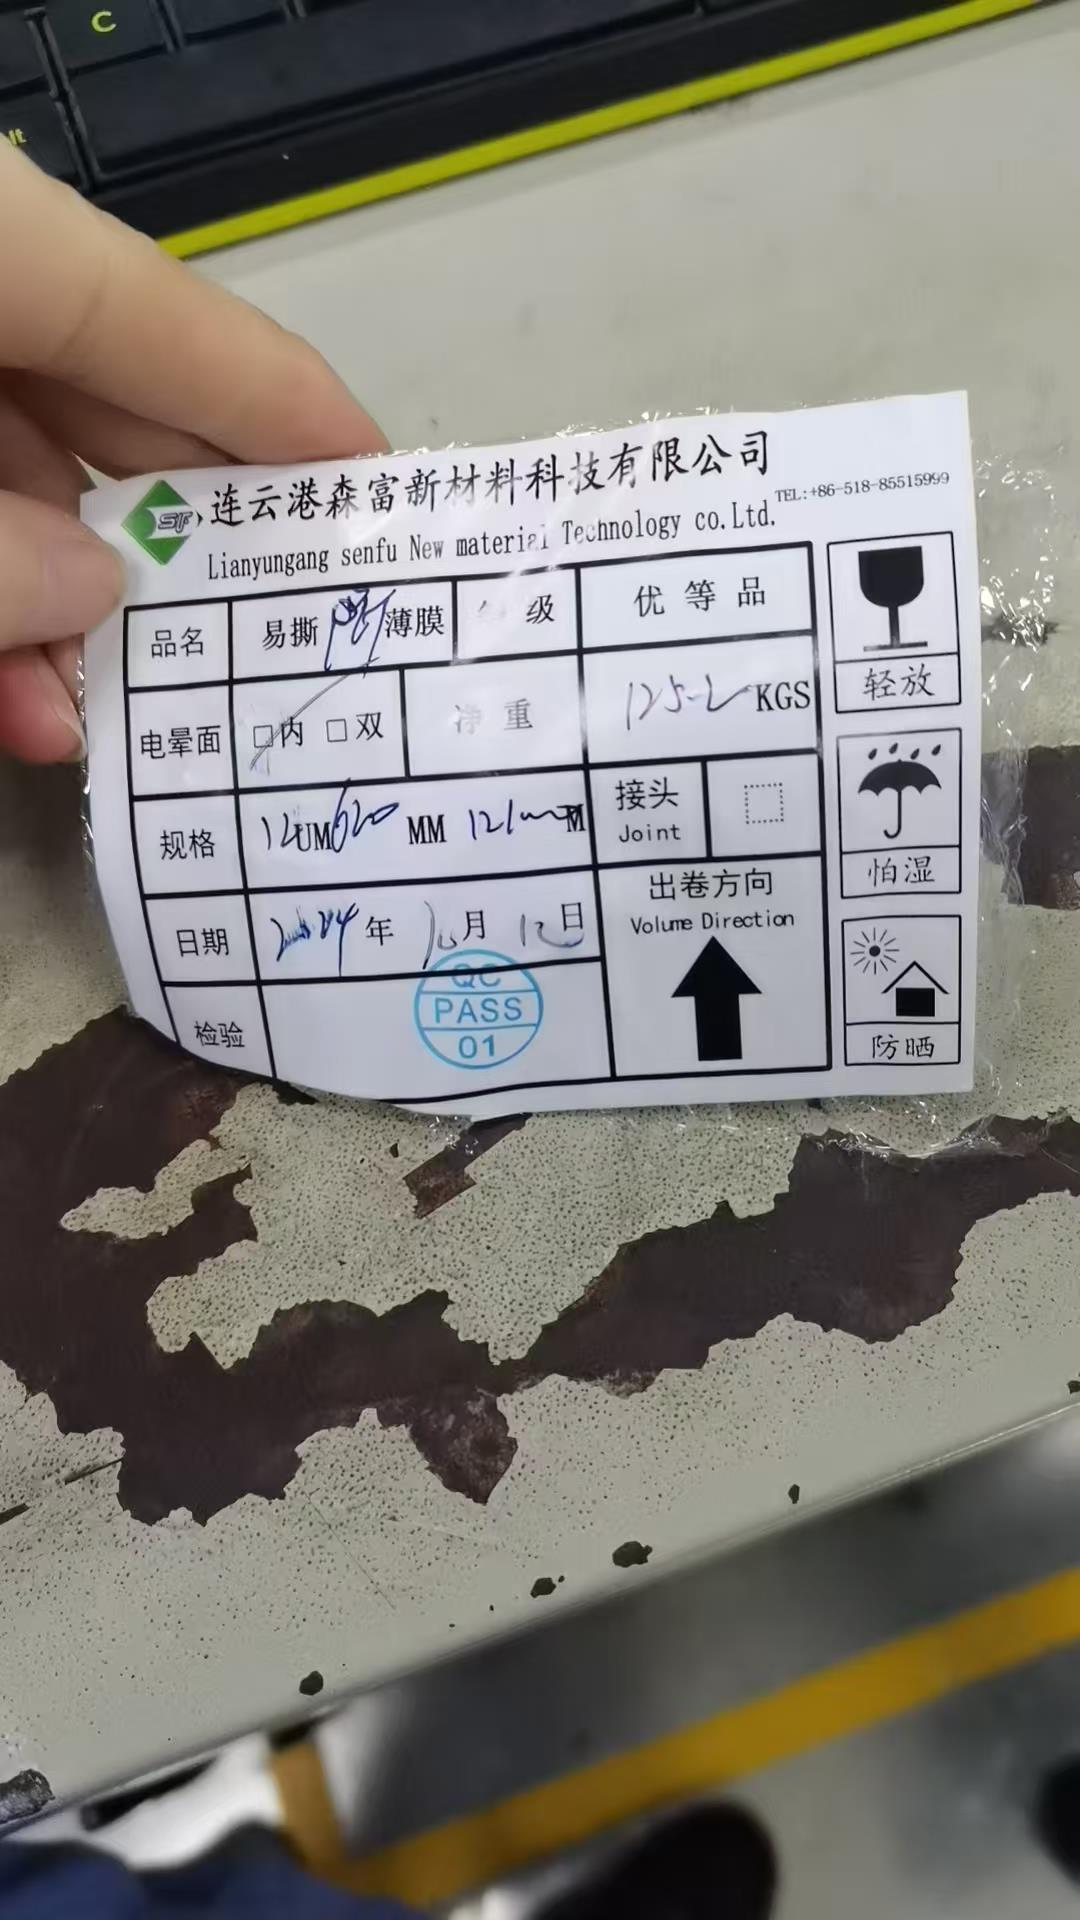 C
SF
连云港森富新材料科技有限公司
TEL:+86-518-85515999
Lianyungang senfu New material Technology co.Ltd.
品名 易撕 薄膜 等级 优等品
电晕面 □内 □双 净重 125.2 KGS
规格 12UM 620 MM 12100 M 接头 Joint
日期 2024年 月 12日
出卷方向
Volume Direction
检验
QC
PASS
01
轻放
怕湿
防晒